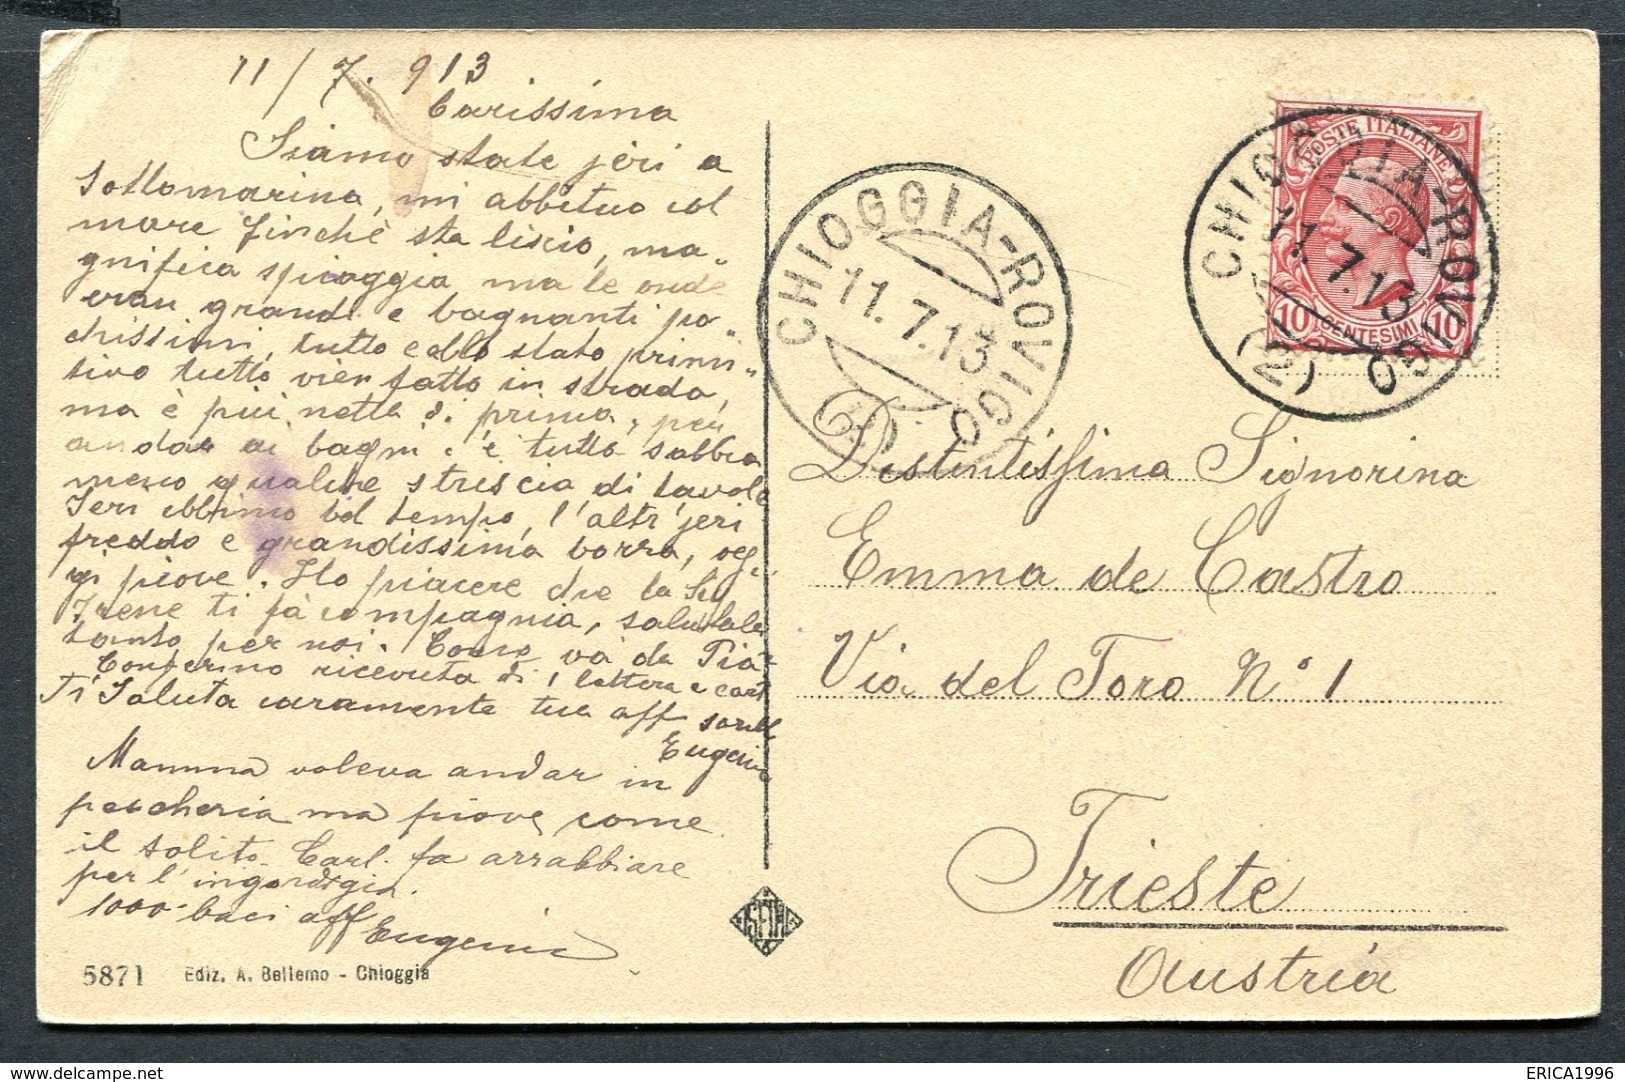 11/7.913
Carissima
Siamo state jeri a
Sottomarina, mi abbituo col
mare finchè sta liscio, ma„
gnifica spiaggia ma le onde
eran grandi e bagnanti po„
chissimi, tutto allo stato primi„
tivo tutto vien fatto in strada,
ma è più netta di prima, per
andar ai bagni è tutto sabbia
meno qualche striscia di tavole
Jeri ebbimo bel tempo, l'altr'jeri
freddo e grandissima borra, og„
gi piove. Ho piacere che la Sig
Irene ti fà compagnia, salutale
tanto per noi. va da
Confermo ricevuta di 1 lettera e cart
Ti saluta caramente tua aff sorell
Eugenia
Mamma voleva andar in
pescheria ma piove come
il solito. Carl. fa arrabbiare
per l'ingordigia.
1000 baci aff Eugenia
5871 Ediz. A. Bellemo - Chioggia
CHIOGGIA-ROVIGO
11.7.13
(2)
POSTE ITALIANE
10 CENTESIMI 10
CHIOGGIA-ROVIGO
11.7.13
(2)
Distintissima Signorina
Emma de Castro
Via del Toro N° 1
Trieste
Austria
ERICA1996